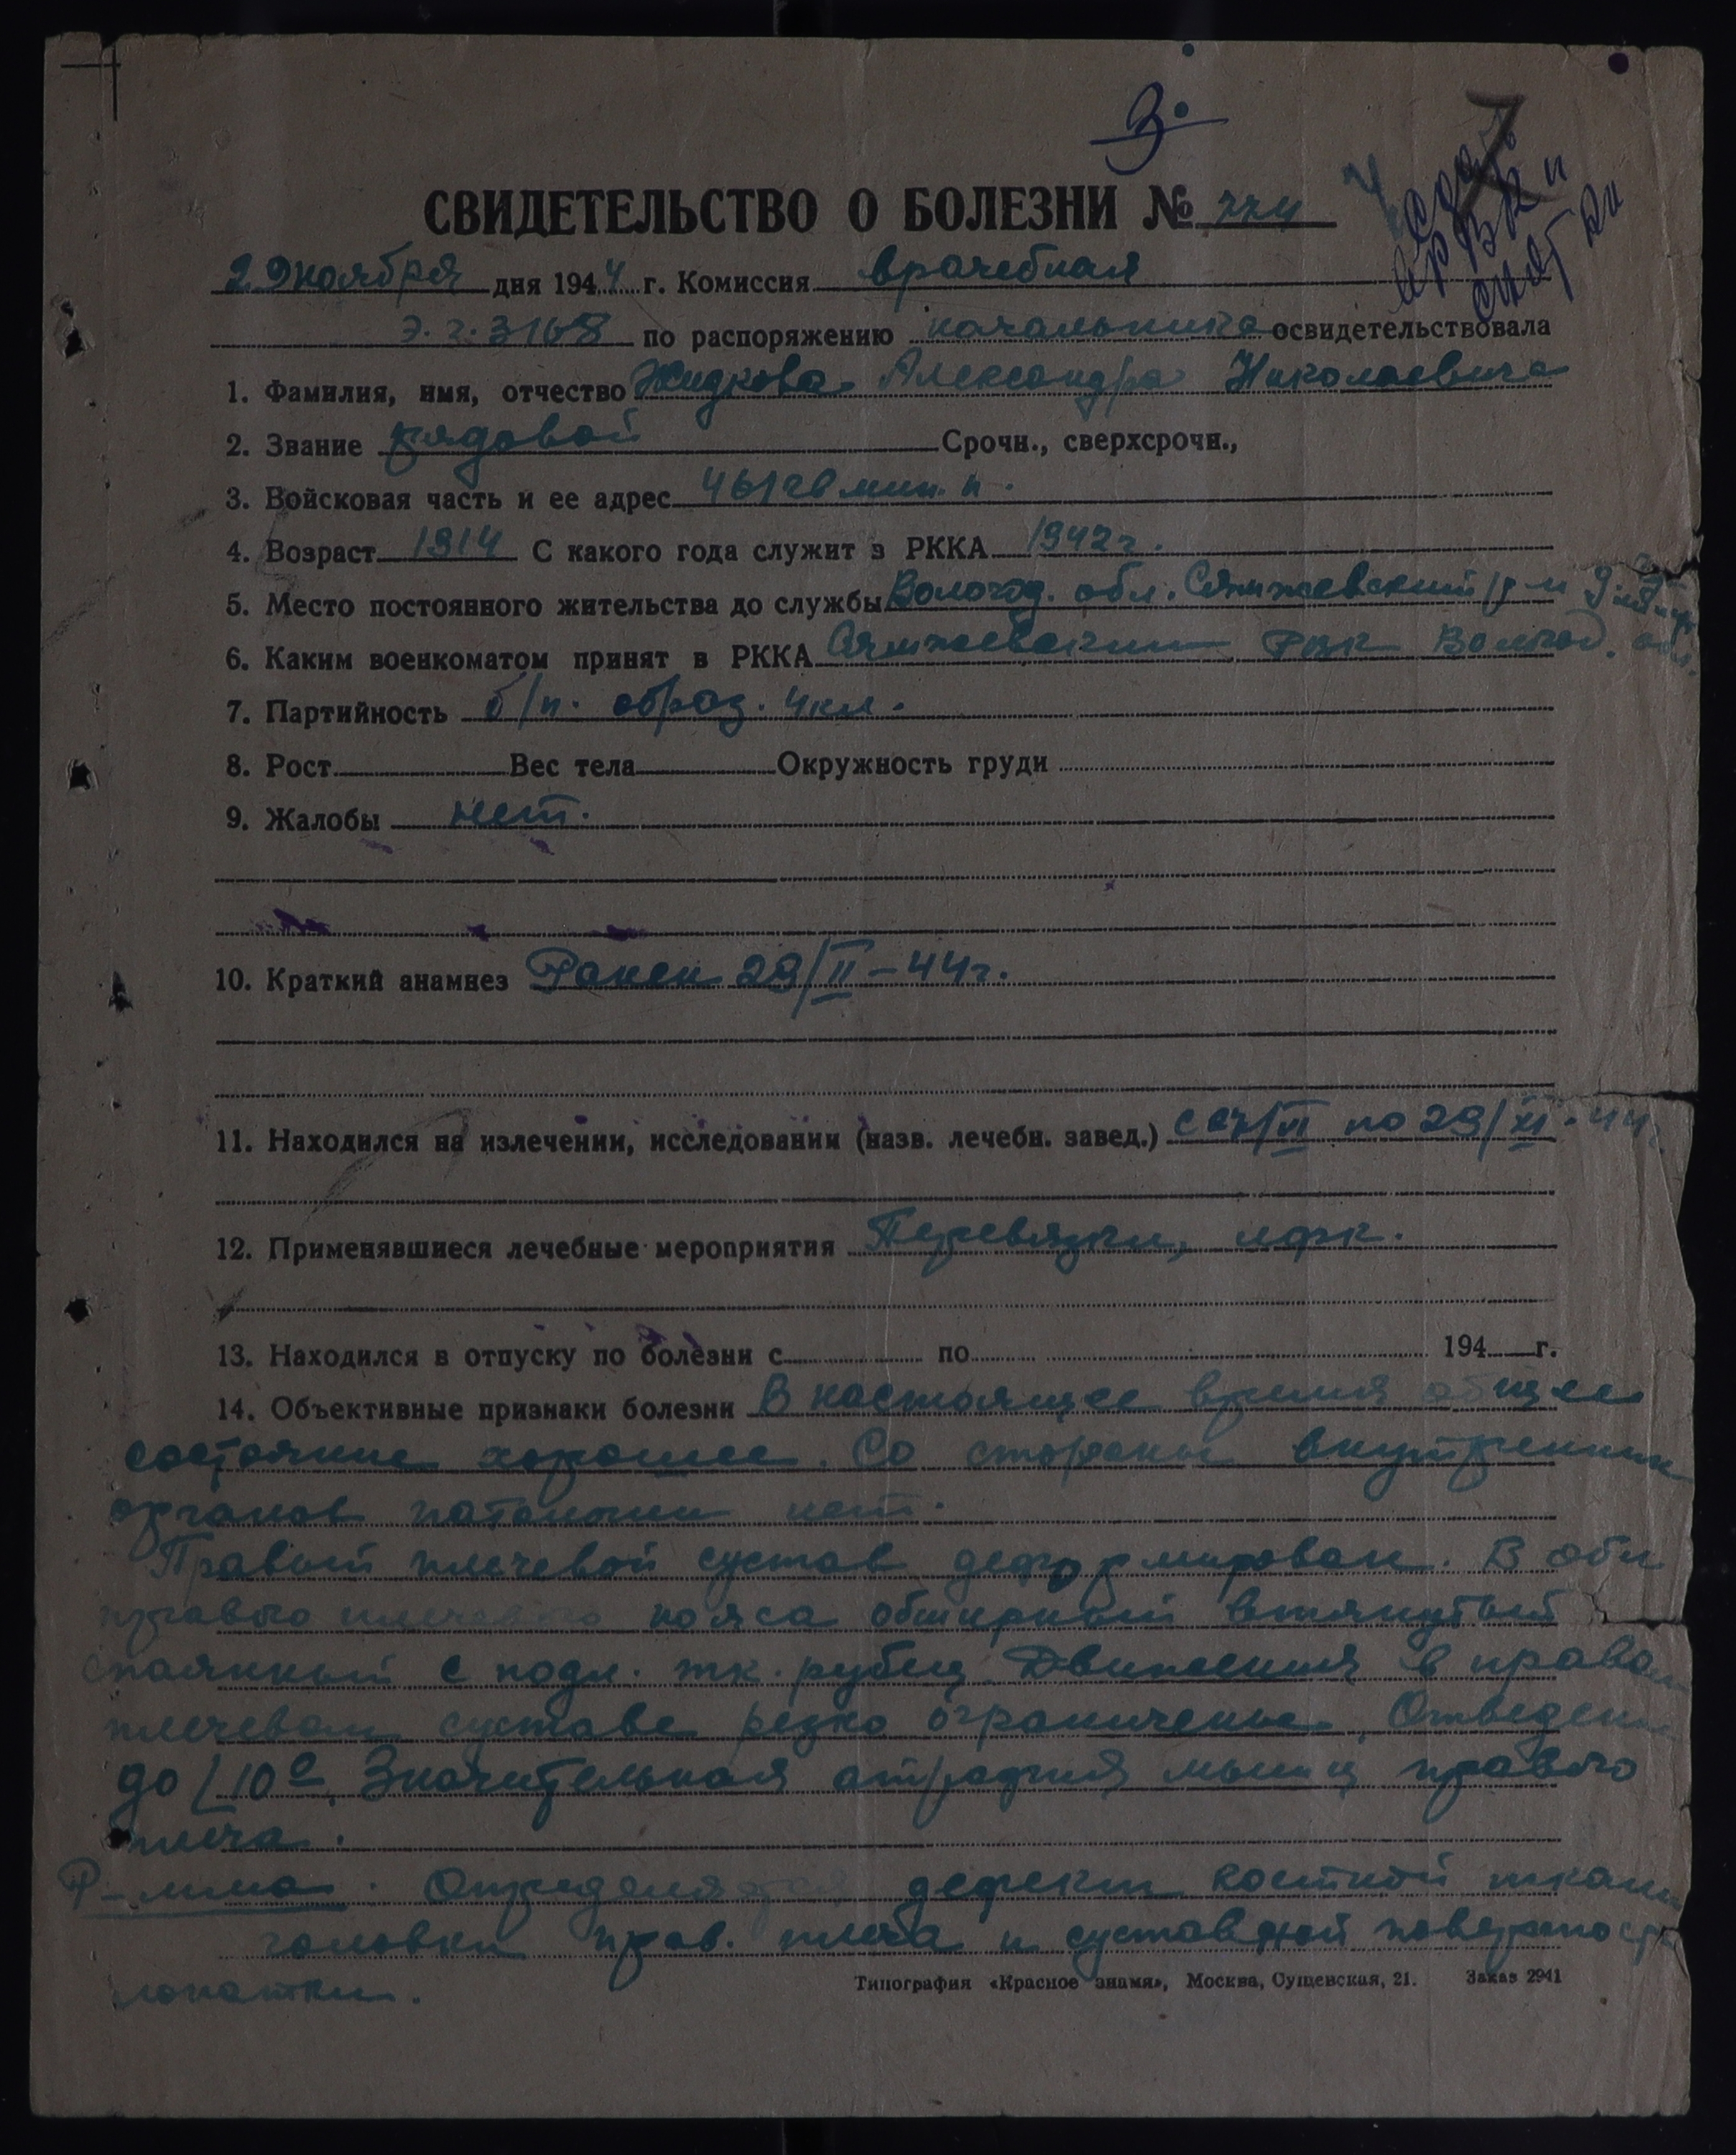 З.
СВИДЕТЕЛЬСТВО О БОЛЕЗНИ №
29 ноября дня 1944 г. Комиссия врачебная
э.г. 3168 по распоряжению начальника освидетельствовала
1. Фамилия, имя, отчество Жидкова Александра Николаевича
2. Звание рядовой Срочн., сверхсрочн.,
3. Войсковая часть и ее адрес 461 гв мин. п.
4. Возраст 1914 С какого года служит в РККА 1942 г.
5. Место постоянного жительства до службы Вологод. обл. Сямжевский р-н
6. Каким военкоматом принят в РККА Сямжевским РВК Вологод. обл.
7. Партийность б/п. образ. 4 кл.
8. Рост Вес тела Окружность груди
9. Жалобы нет.
10. Краткий анамнез Ранен 29/II-44г.
11. Находился на излечении, исследовании (назв. лечебн. завед.) с /VI по 29/XI-44
12. Применявшиеся лечебные мероприятия Перевязки, лфк.
13. Находился в отпуску по болезни с по 194 г.
14. Объективные признаки болезни В настоящее время общее
состояние хорошее. Со стороны внутренних
органов патологии нет.
Правый плечевой сустав деформирован. В обл
правого плечевого пояса обширный втянутый
спаянный с подл. тк. рубец. Движения в правом
плечевом суставе резко ограничены. Отведение
до ∠10°. Значительная атрофия мышц правого
плеча.
Р-мма. Определяется дефект костной ткани
головки прав. плеча и суставной поверхности
лопатки.
Типография «Красное знамя», Москва, Сущевская, 21. Заказ 2941